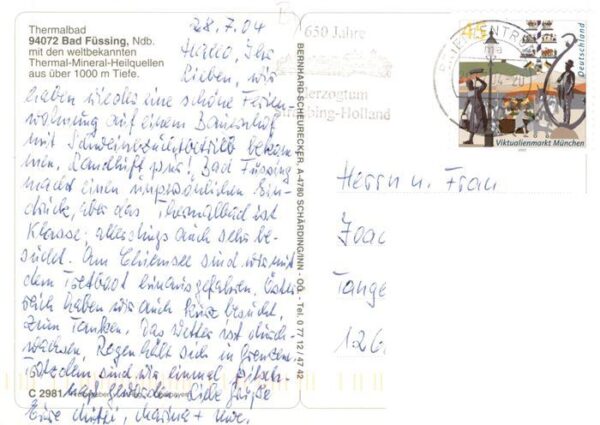 Thermalbad
94072 Bad Füssing, Ndb.
mit den weltbekannten
Thermal-Mineral-Heilquellen
aus über 1000 m Tiefe.
28.7.04
Hallo, Ihr
Lieben, wir
haben wieder eine schöne Ferien-
wohnung auf einem Bauernhof
mit Schweinezuchtbetrieb bekom-
men. Landluft pur! Bad Füssing
macht einen unpersönlichen Ein-
druck, aber das Thermalbad ist
Klasse, allerdings auch sehr be-
sucht. Am Chiemsee sind wir mit
dem Tretboot hinausgefahren. Öster-
reich haben wir auch kurz besucht,
zum Tanken. Das Wetter ist durch-
wachsen, Regen hält sich in Grenzen.
Trotzdem sind wir einmal pitsch-
naß geworden. Liebe Grüße
Eure Mutti, Marina + Uwe.
C 2981
BERNHARD SCHEURECKER, A-4780 SCHÄRDING/INN - OÖ. - Tel. 0 77 12 / 47 42
650 Jahre
Herzogtum
Straubing-Holland
45
Deutschland
Viktualienmarkt München
Herrn u. Frau
Joac
Tange
126